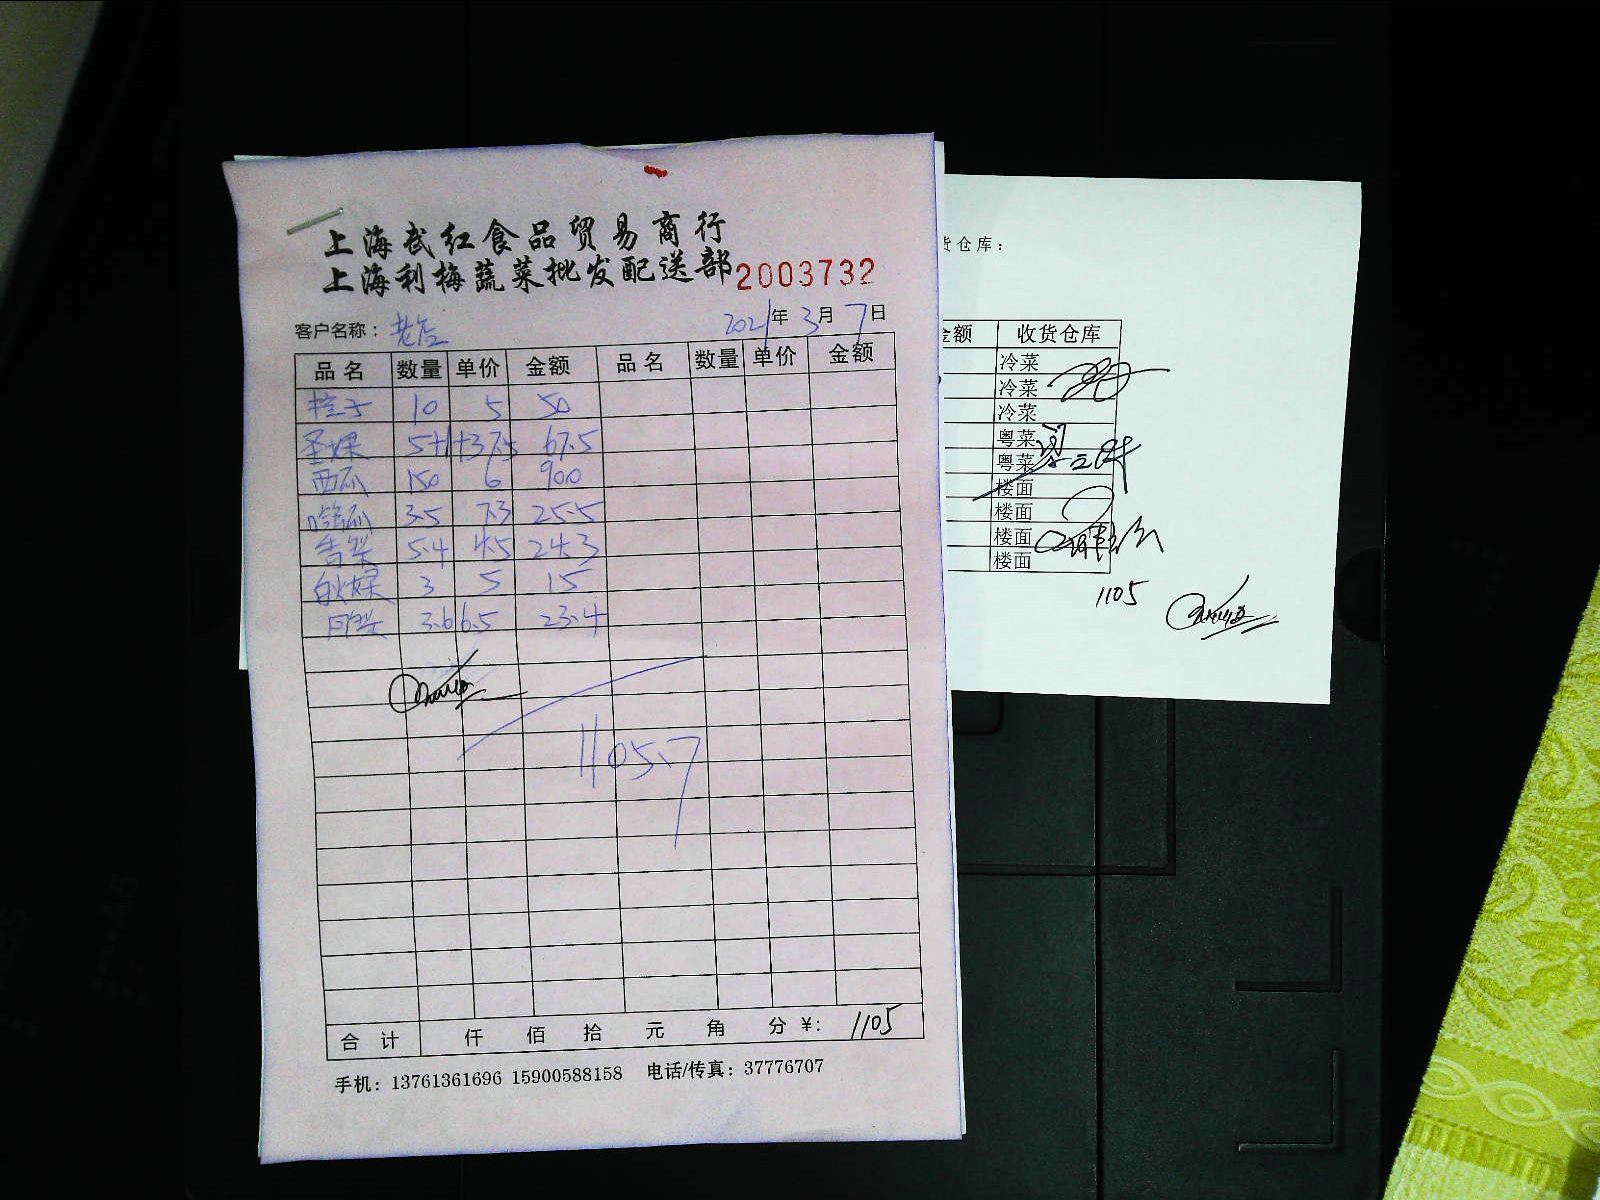 上海武红食品贸易商行
上海利梅蔬菜批发配送部 2003732
客户名称：老店 2021年3月7日
品名 数量 单价 金额 品名 数量 单价 金额
10 5 50
圣果 5+1+37.5 67.5
西瓜 150 6 900
哈瓜 3.5 7.3 25.5
5.4 4.5 24.3
3 5 15
3.6 6.5 23.4
1105.7
合计 仟 佰 拾 元 角 分 ¥: 1105
手机：13761361696 15900588158 电话/传真：37776707
货仓库：
金额 收货仓库
冷菜
冷菜
冷菜
粤菜
粤菜
楼面
楼面
楼面
楼面
1105